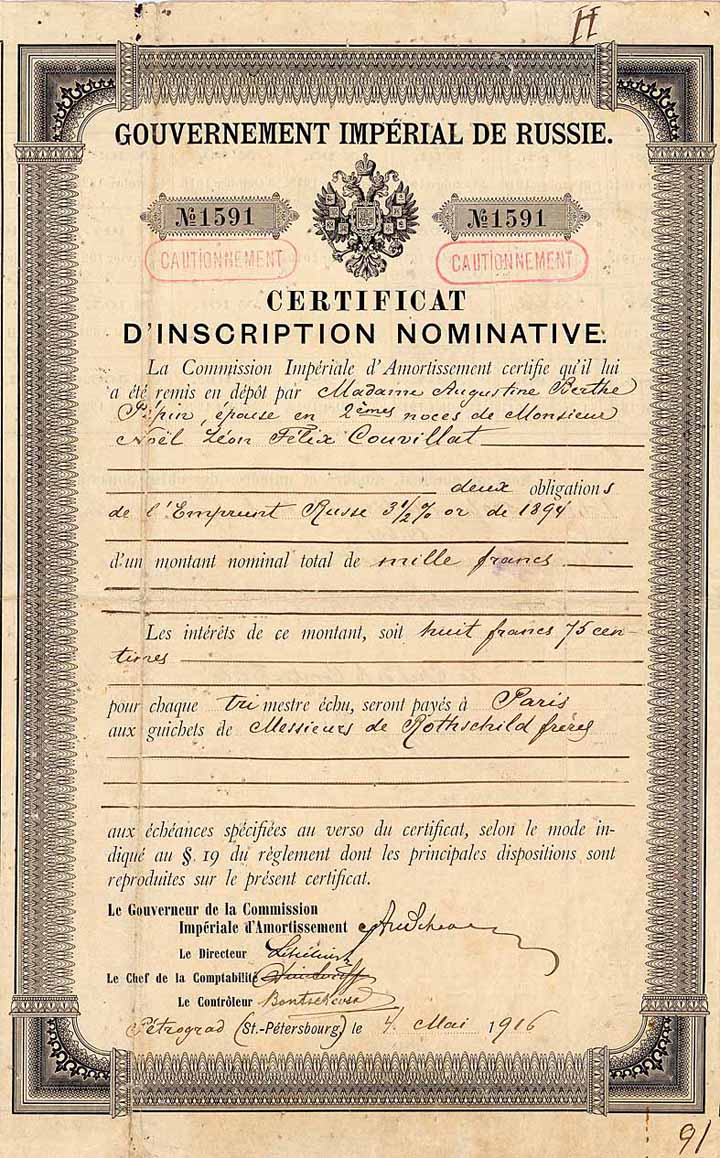 II
GOUVERNEMENT IMPÉRIAL DE RUSSIE.
№1591 №1591
CAUTIONNEMENT CAUTIONNEMENT
CERTIFICAT
D'INSCRIPTION NOMINATIVE.
La Commission Impériale d'Amortissement certifie qu'il lui
a été remis en dépôt par Madame Augustine Berthe
Pépin, épouse en 2èmes noces de Monsieur
Noël Léon Félix Couvillat
deux obligations
de l'Emprunt Russe 3½% or de 1894
d'un montant nominal total de mille francs
Les intérêts de ce montant, soit huit francs 75 cen-
times
pour chaque trimestre échu, seront payés à Paris
aux guichets de Messieurs de Rothschild frères
aux échéances spécifiées au verso du certificat, selon le mode in-
diqué au §. 19 du règlement dont les principales dispositions sont
reproduites sur le présent certificat.
Le Gouverneur de la Commission
Impériale d'Amortissement
Le Directeur
Le Chef de la Comptabilité
Le Contrôleur
Pétrograd (St.-Pétersbourg,) le 4 Mai 1916
91